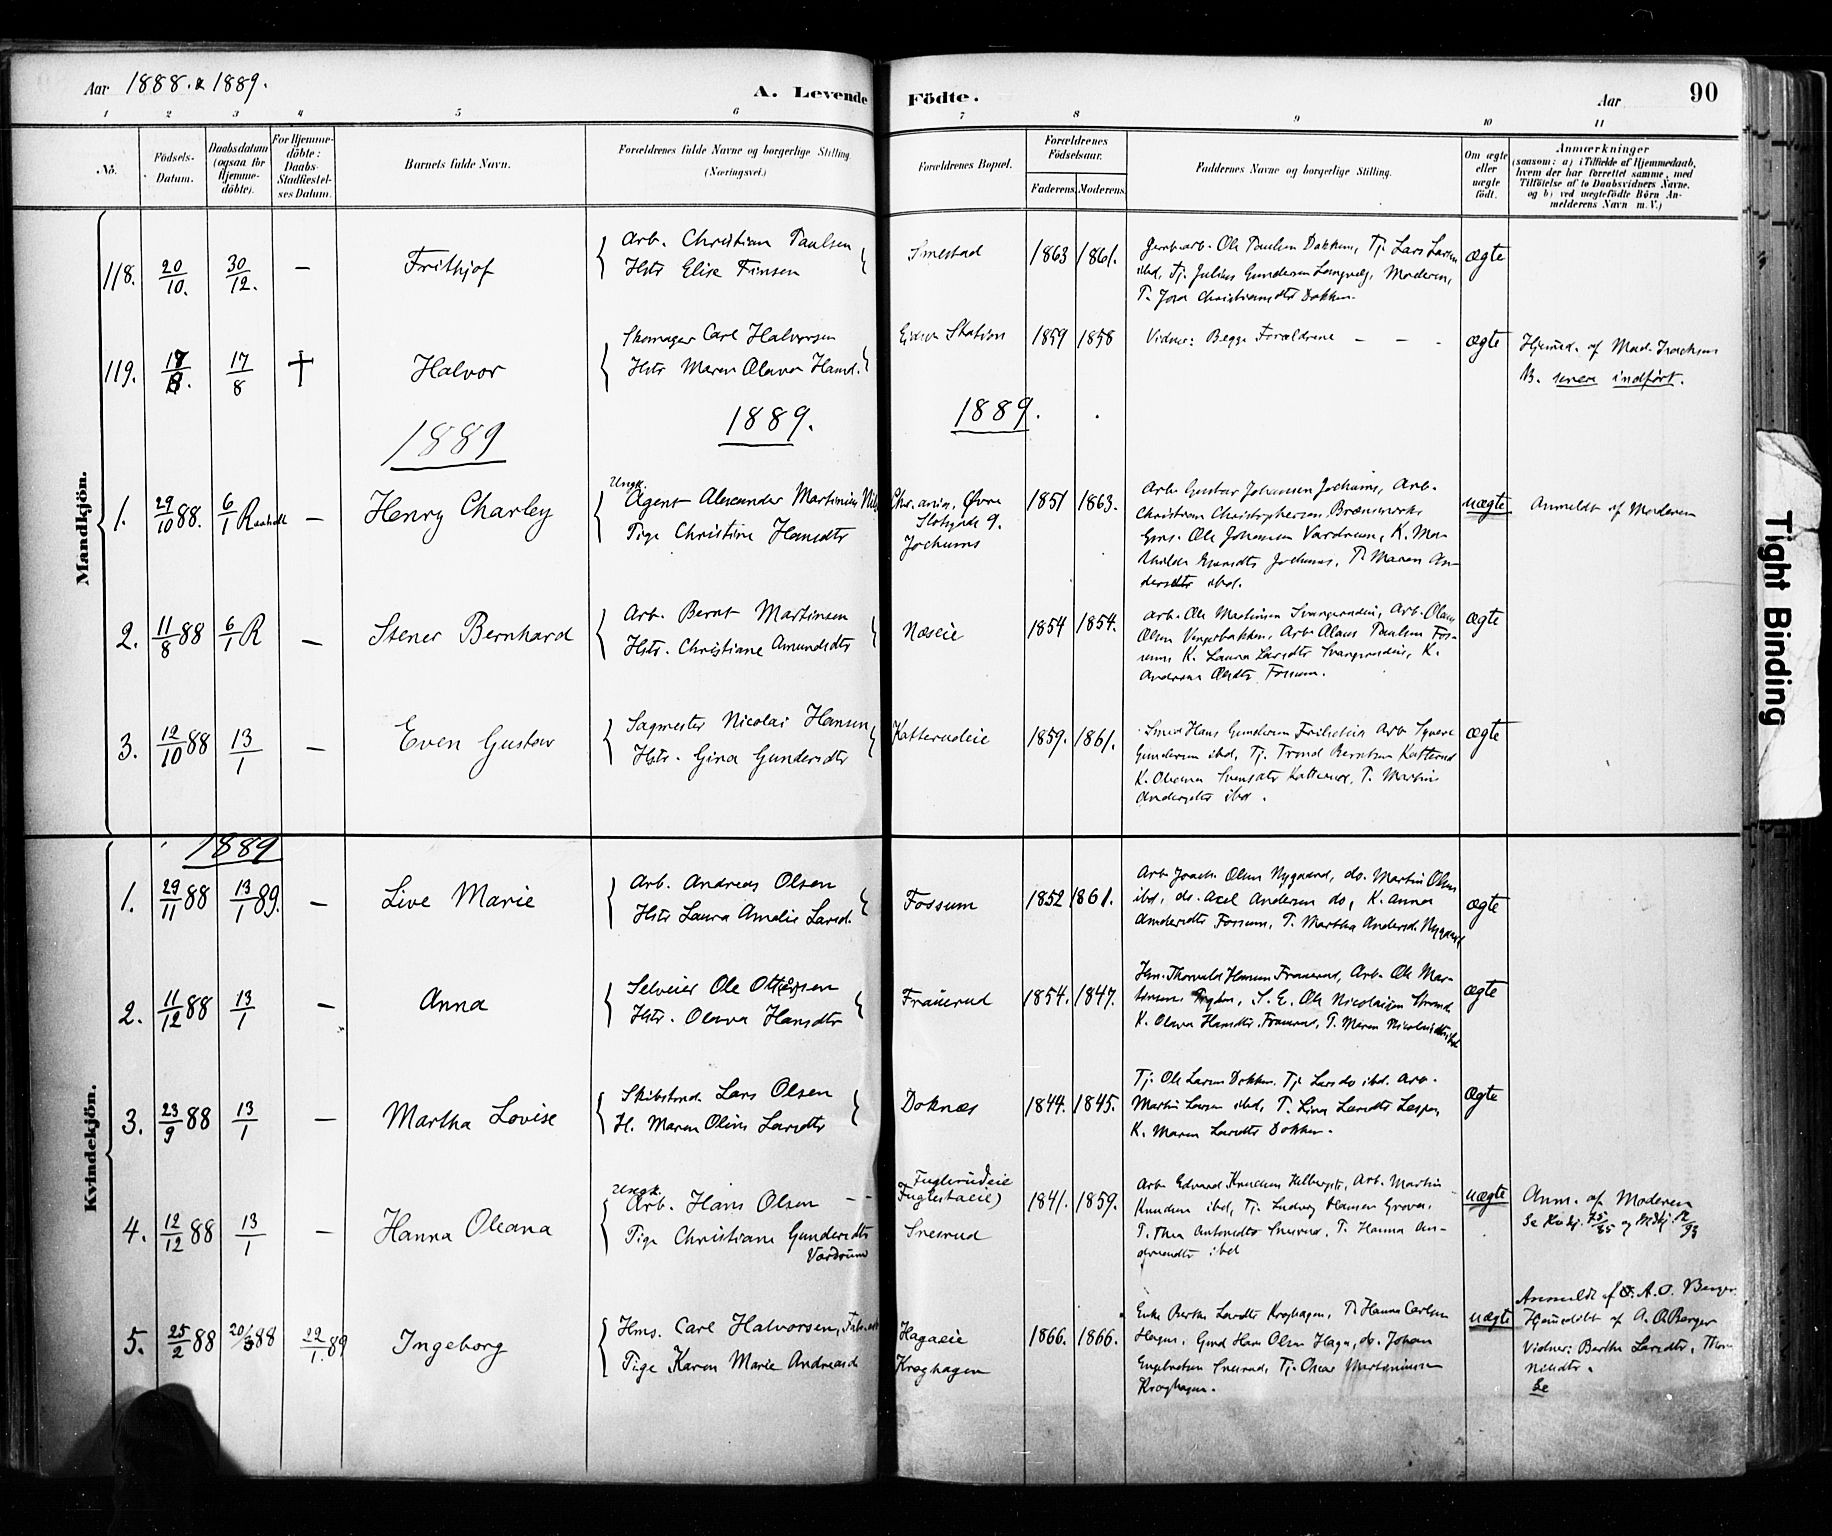 Aar 1888. & 1889.
A. Levende
Födte.
Aar
90
1 2 3 4 5 6 7 8 9 10 11
No.
Födsels-Datum.
Daabsdatum (ogsaa for Hjemme-döbte).
For Hjemme-döbte: Daabs-Stadfæstel-ses Datum.
Barnets fulde Navn.
Forældrenes fulde Navne og borgerlige Stilling (Næringsvei.)
Forældrenes Bopæl.
Forældrenes Födselsaar.
Faderens. Moderens.
Faddernes Navne og borgerlige Stilling.
Om ægte eller uægte födt.
Anmærkninger
(saasom: a) i Tilfælde af Hjemmedaab,
hvem der har forrettet samme, med
Tilföielse af to Daabsvidners Navne,
og b) ved uægtefödte Börn An-
melderens Navn m. V.)
Mandkjön.
118. 20/10. 30/12. – Frithjof
Arb. Christian Paulsen
Hstr Elise Finsen
Smestad 1863 1861.
Gerbarb. Ole Paulsen Dokken, Tj. Lars Larsen
ibd, Tj. Julius Gundersen Langvelg, Moderen,
P. Josa Christiansdtr Dokken.
ægte
119. 17/8. 17/8 † Halvor
Skomager Carl Halvorsen
Hstr Maren Olava Hansd.
Station 1859 1858
Vidner: Begge Forældrene – – -
ægte
Hjemd. af Mad.
B. senere indført.
1889 1889. 1889.
1. 29/10 88. 6/1 – Henry Charley
Ungk. Agent Alexander Martinius
Pige Christine Hansdtr
Øvre
Slotsgde 9.
Jochums
1851 1863.
Arb. Gustav Johansen Jochums, Arb.
Christian Christophersen
Ole Johansen Vardrum, K. Ma-
thilde Jochums, P. Maren An-
dersdtr ibd.
uægte Anmeldt af Moderen
2. 11/8 88 6/1 R – Stener Bernhard
Arb. Bernt Martinsen
Hstr. Christiane Amundsdtr
Næseie 1854 1854.
Arb. Ole Martinsen Arb. Olaus
Olsen Arb. Olaus Paulsen Fos-
sum K. Laura Larsdtr K.
Andrea Olsdtr Fossum.
ægte
3. 12/10 88 13/1 – Even Gustav
Sagmester Nicolai Hansen
Hstr. Gina Gundersdtr
Katterudeie 1859. 1861.
Smed Hans Gundersen Arb.
Gundersen ibd, Tj. Trond Berntsen Katterud
K. Oleana Svensdtr Katterud, P.
Andersdtr ibd.
ægte
1889
Kvindekjön.
1. 29/11 88 13/1 89. – Live Marie
Arb. Andreas Olsen
Hstr Laura Amalie Larsd.
Fossum 1852 1861.
Arb. Olsen Nygaard, do. Martin Olsen
ibd, do. Axel Andersen do, K. Anna
Andersdtr Fossum, P. Martha Andersd. Nygaard
ægte
2. 11/12 88 13/1 – Anna
Selveier Ole Ottersen
Hstr. Olava Hansdtr
Frauerud 1854. 1847.
Thorvald Hansen Frauerud, Arb. Ole Mar-
tinsen S. E. Ole Nicolaisen
K. Olava Hansdtr Frauerud, P. Maren Nicolaisdtr ibd
ægte
3. 23/9 88 13/1 – Martha Lovise
Skibstmd. Lars Olsen
H. Maren Oline Larsdtr
Doknæs 1844. 1845.
Tj. Ole Larsen Dokken, Tj. Lars do ibd. Arb.
Martin Larsen ibd, P. Lina Larsdtr
K. Maren Larsdtr Dokken.
Ægte
4. 12/12 88 13/1 – Hanna Oleana
Ungk. Arb. Hans Olsen – –
Pige Christiane Gundersdtr
Vardrum
Fuglerudeie
Snesrud
1841. 1859.
Arb. Edvard Knudsen Arb. Martin
Knudsen ibd, Tj. Ludvig Hansen Graver.
P. Thea Antonsdtr Snesrud, P. Hanna An-
ibd
uægte Anm. af Moderen
Se Kvkj. 75/85 og
5. 25/2 88 20/3 88 22/1. 89 Ingeborg
Hms. Carl Halvorsen,
Pige Karen Marie Andreasd
Hagaeie
Kroghagen
1866. 1866.
Enke Berthe Larsdtr Kroghagen, P. Hanna Carlsen
Hagen, Gmd Hans Olsen Haga, do. Johan
Engebretsen Snesrud, Tj. Oscar Martiniusen
Kroghagen.
uægte
Anmeldt af A. O. Berger
Hjemdöbt af A. O. Berger
Vidner: Berthe Larsdtr,
Nilsdtr.
Se
Tight Binding